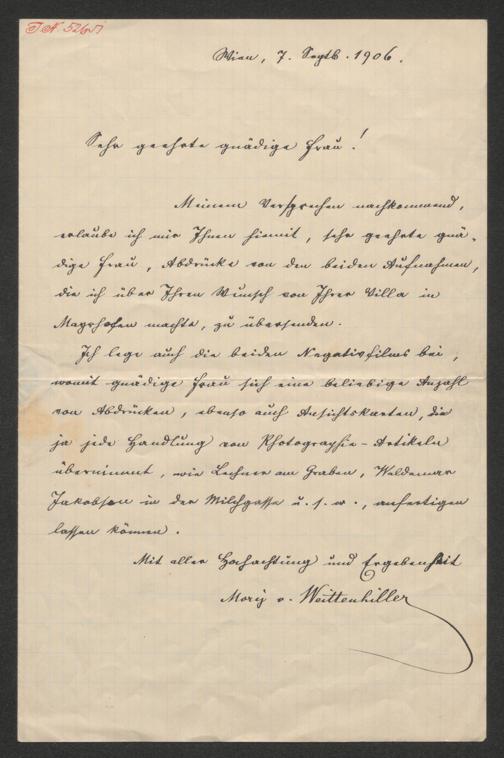 Wien, 7. Septb. 1906.
Sehr geehrte gnädige Frau!
Meinem Versprechen nachkommend,
erlaube ich mir Ihnen hiemit, sehr geehrte gnä-
dige Frau, Abdrücke von den beiden Aufnahmen,
die ich über Ihren Wunsch von Ihrer Villa in
Mayrhofen machte, zu übersenden.
Ich lege auch die beiden Negativfilms bei,
womit gnädige Frau sich eine beliebige Anzahl
von Abdrücken, ebenso auch Ansichtskarten, die
ja jede Handlung von Photographie-Artikeln
übernimmt, wie Lechner am Graben, Waldemar
Jakobson in der Milchgasse u. s. w., anfertigen
lassen können.
Mit aller Hochachtung und Ergebenheit
Moriz v. Weittenhiller